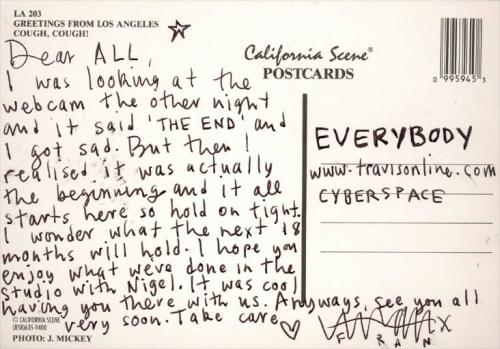 LA 203
GREETINGS FROM LOS ANGELES
COUGH, COUGH!
Dear ALL,
I was looking at the
webcam the other night
and it said 'THE END' and
I got sad. But then I
realised it was actually
the beginning and it all
starts here so hold on tight.
I wonder what the next 18
months will hold. I hope you
enjoy what we've done in the
studio with Nigel. It was cool
having you there with us. Anyways, see you all
very soon. Take care
FRAN
x
© CALIFORNIA SCENE
(858)635-9400
PHOTO: J. MICKEY
California Scene®
POSTCARDS
0 995945 3
EVERYBODY
www.travisonline.com
CYBERSPACE